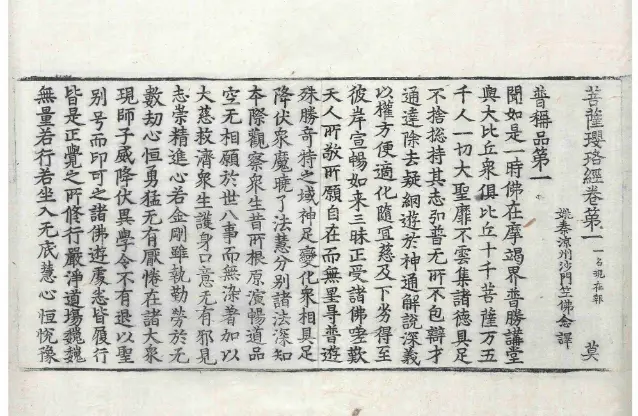 菩薩瓔珞經卷第一 一名現在報 莫
姚秦涼州沙門竺佛念譯
普稱品第一
聞如是一時佛在摩竭界普勝講堂
與大比丘衆俱比丘十千菩薩万五
千人一切大聖靡不雲集諸德具足
不捨揔持其志弘普无所不包辯才
通達除去疑網遊於神通解說深義
以權方便適化隨宜慈及下劣得至
彼岸宣暢如来三昧正受諸佛嗟歎
天人所敬所願自在而無罣导普遊
殊勝奇特之域神足變化衆相具足
降伏衆魔曉了法慧分别諸法深知
本際觀察衆生昔所根原演暢道品
空无相願於世八事而無染著加以
大慈救濟衆生護身口意无有邪見
志崇精進心若金剛雖執勤勞於无
數劫心恒勇猛无有猒惓在諸大衆
現師子威降伏異學令不有退以聖
别号而印可之諸佛遊處悉皆履行
皆是正覺之所修行嚴淨道場巍巍
無量若行若坐入无底慧心恒悅豫